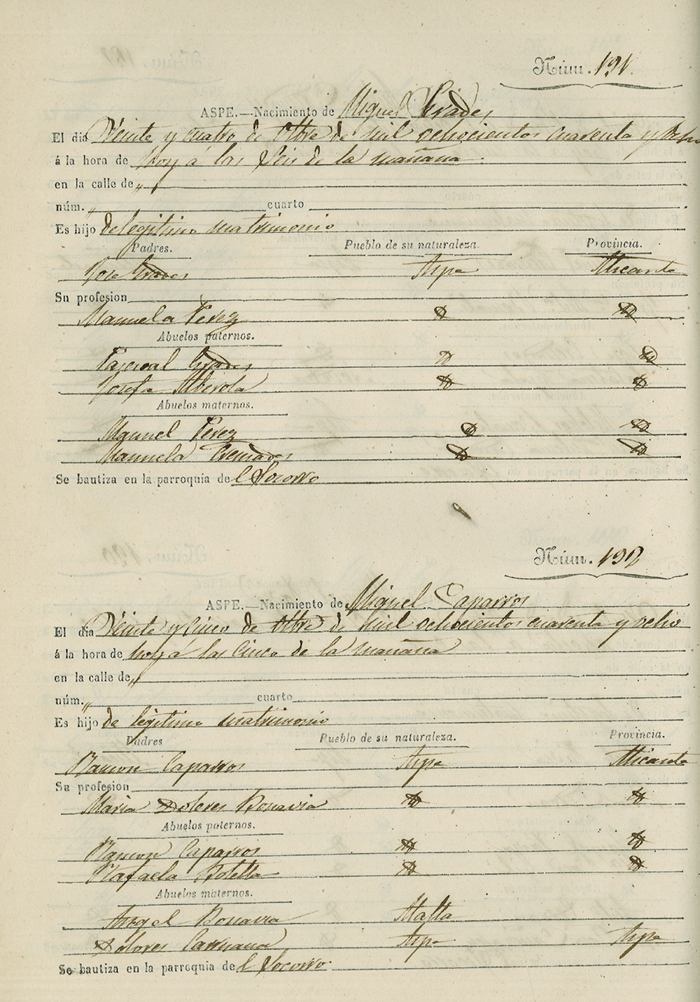 Núm. 191.
ASPE.—Nacimiento de Miguel
El día Veinte y cuatro de Otbre de mil ochocientos cuarenta y ocho
á la hora de hoy a las Seis de la mañana
en la calle de „
núm. „ cuarto
Es hijo de legitimo matrimonio
Padres. Pueblo de su naturaleza. Provincia.
Jose Aspe Alicante
Su profesion
Manuela Perez
Abuelos paternos.
Pascual
Josefa Alberola
Abuelos maternos.
Manuel Perez
Manuela Cremades
Se bautiza en la parroquia de l Socorro
Núm. 192
ASPE.—Nacimiento de Miguel Caparros
El día Veinte y cinco de Otbre de mil ochocientos cuarenta y ocho
á la hora de hoy á las cinco de la mañana
en la calle de „
núm. „ cuarto
Es hijo de legitimo matrimonio
Padres Pueblo de su naturaleza. Provincia.
Ramon Caparros Aspe Alicante
Su profesion
Maria Dolores Bonavia
Abuelos paternos.
Ramon Caparros
Rafaela Botella
Abuelos maternos.
Angel Bonavia Malta
Dolores Caruana Aspe Aspe
Se bautiza en la parroquia de l Socorro